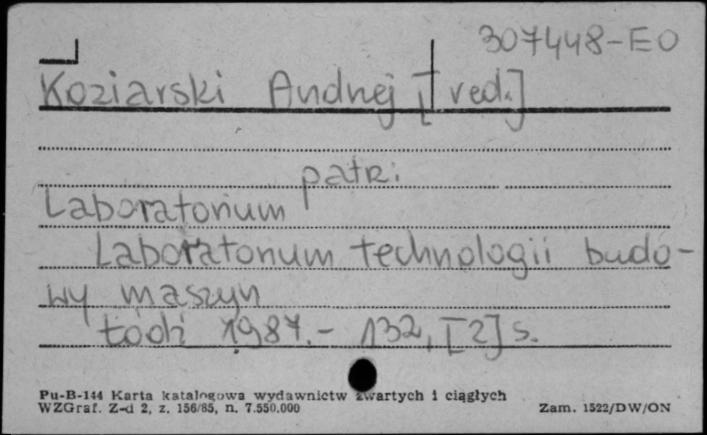 307448-EO
Koziarski Andrzej [red.]
patrz:
Laboratorium
Laboratorium technologii budo-
wy maszyn
Łódź 1987.- 132, [2] s.
Pu-B-144 Karta katalogowa wydawnictw zwartych i ciągłych
WZGraf. Z-d 2, z. 156/85, n. 7.550.000
Zam. 1522/DW/ON